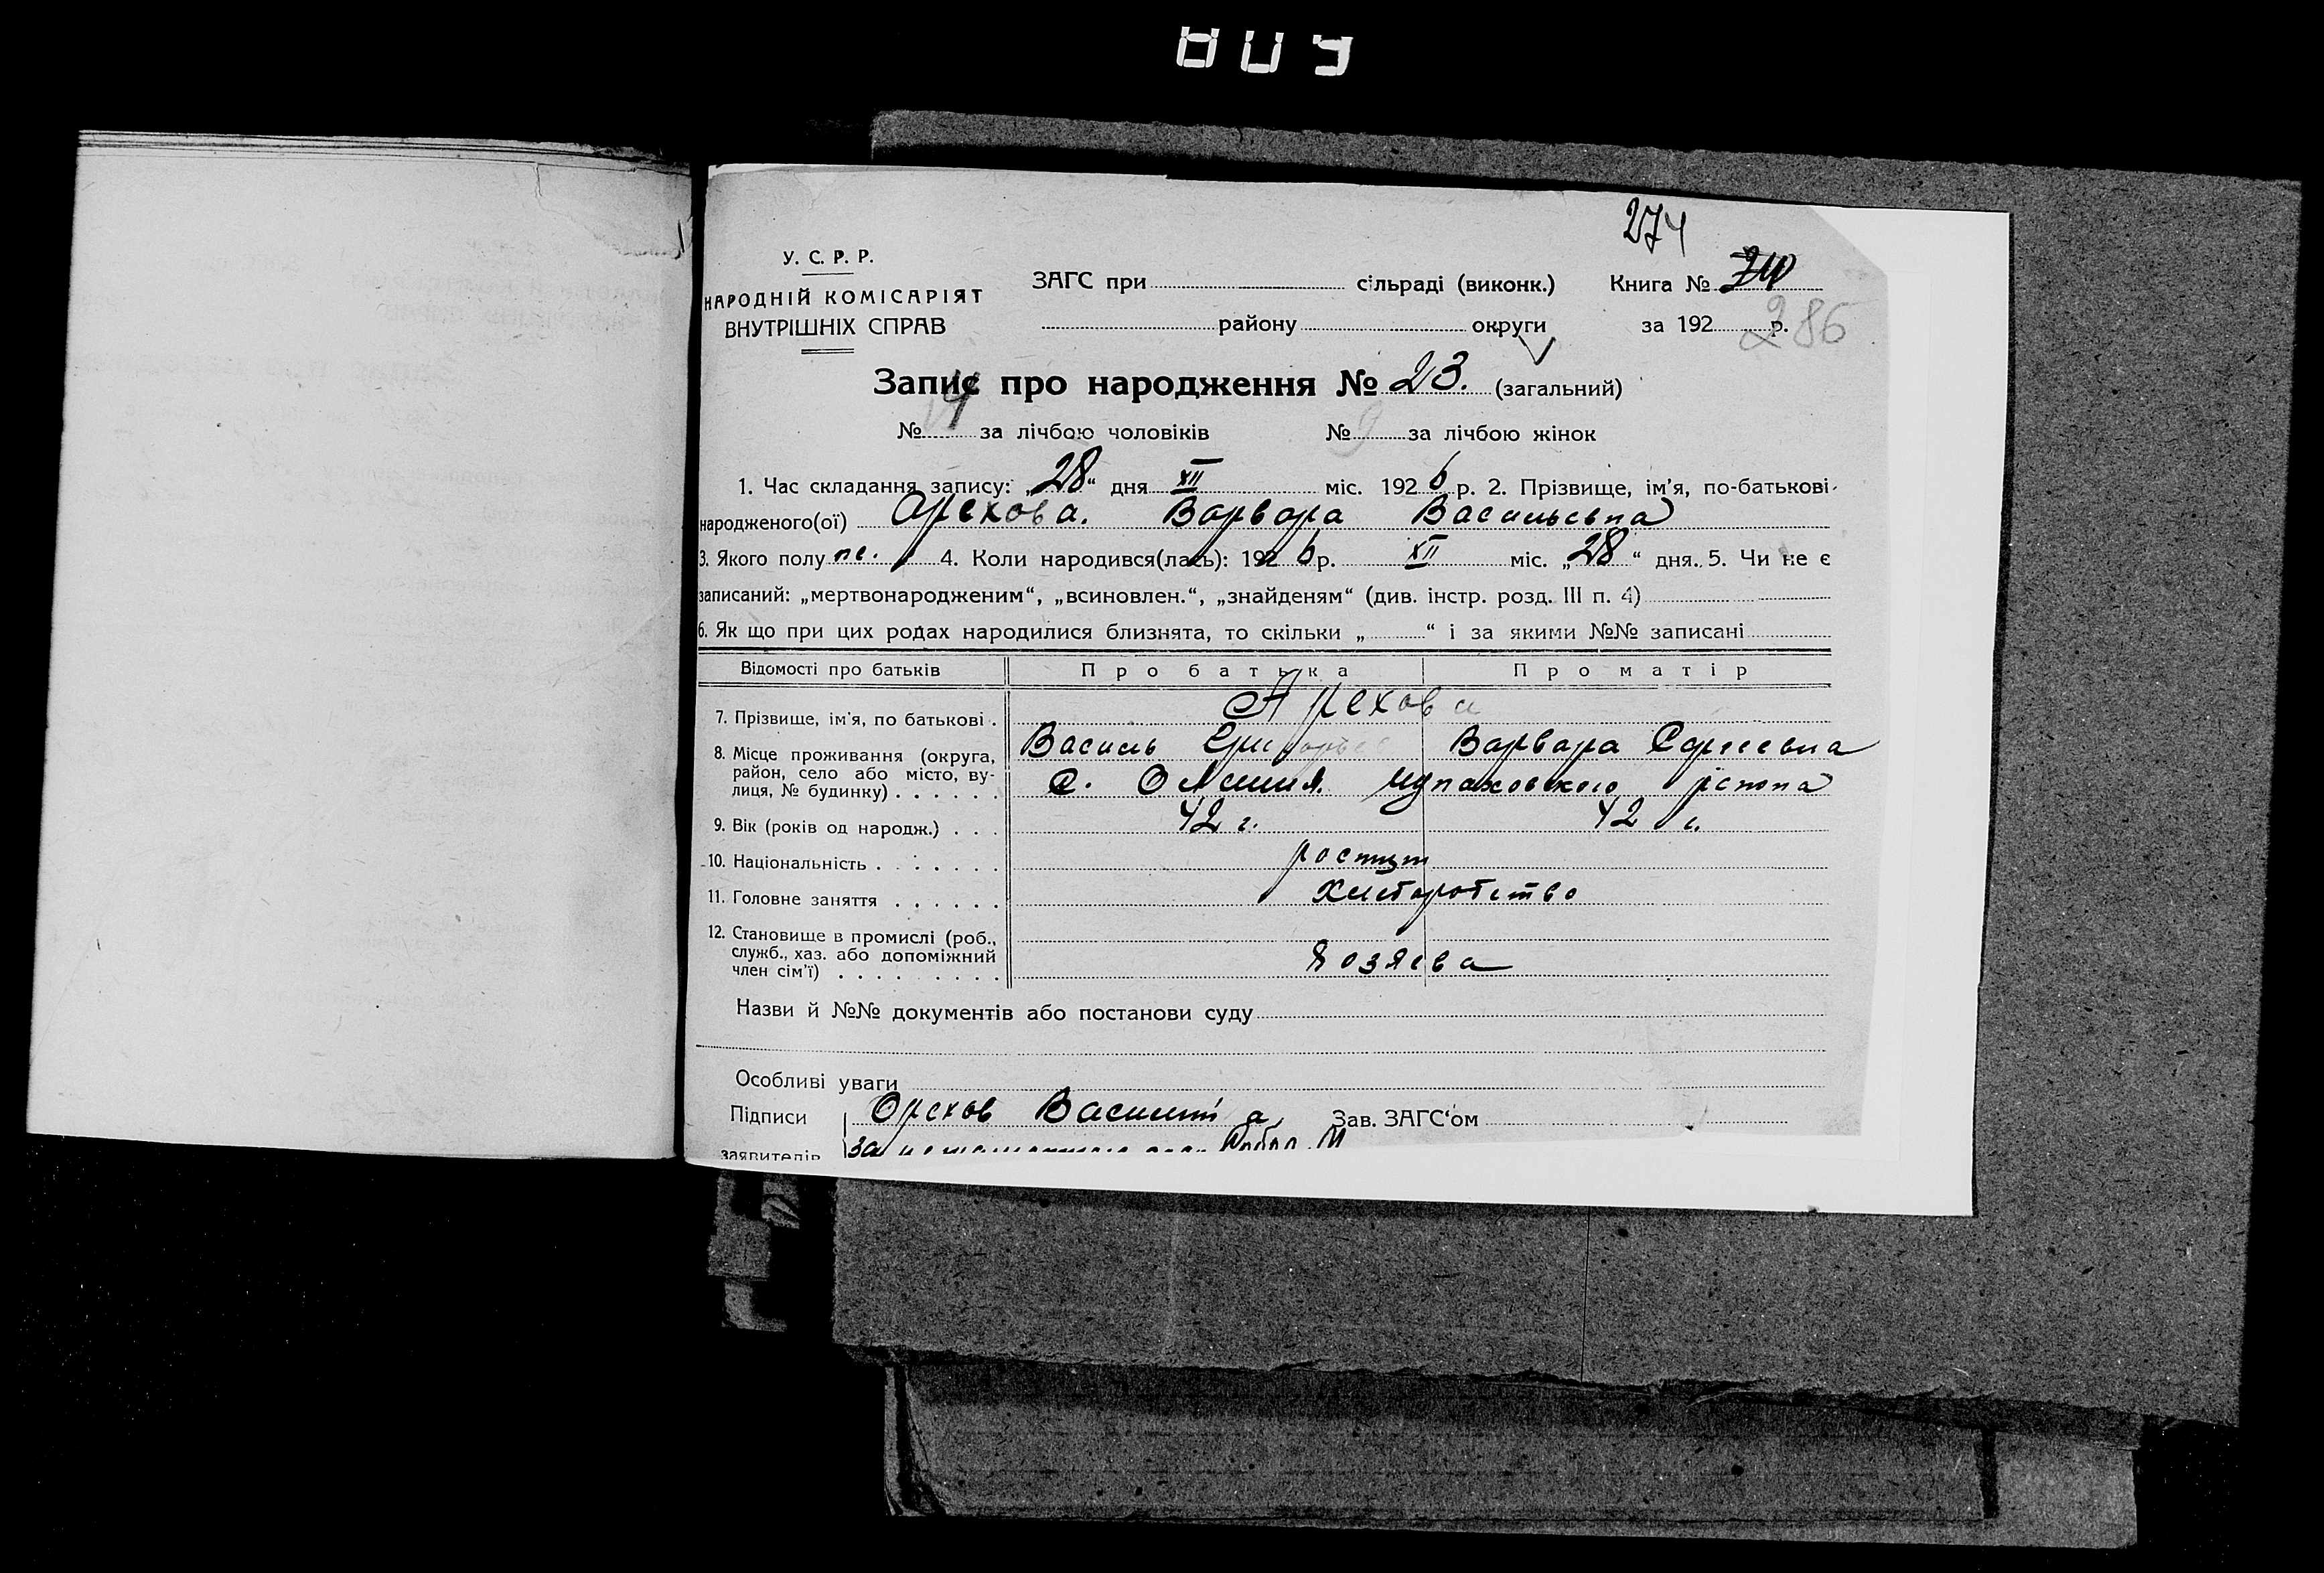 274
У. С. Р. Р.
НАРОДНІЙ КОМІСАРІЯТ
ВНУТРІШНІХ СПРАВ
ЗАГС при сільраді (виконк.) Книга №
району округи за 192 р. 286
Запис про народження № 23. (загальний)
№ 14 за лічбою чоловіків № 9 за лічбою жінок
1. Час складання запису: „28“ дня XII міс. 1926 р. 2. Прізвище, ім'я, по-батькові
народженого(ої) Орехова. Варвара Васильевна
3. Якого полу 4. Коли народився(лась): 1926 р. XII міс. „28“ дня. 5. Чи не є
записаний: „мертвонародженим“, „всиновлен.“, „знайденям“ (див. інстр. розд. III п. 4)
6. Як що при цих родах народилися близнята, то скільки „ “ і за якими №№ записані
Відомості про батьків Про батька Про матір
7. Прізвище, ім'я, по батькові . Орехова
Василь Григорьев Варвара Сергеевна
8. Місце проживання (округа,
район, село або місто, ву-
лиця, № будинку) . . . . . . с. району
9. Вік (років од народж.) . . . 42 г. 42 г.
10. Національність . . . . . . .
11. Головне заняття . . . . . . Хлеборобство
12. Становище в промислі (роб.,
служб., хаз. або допоміжний
член сім'ї) . . . . . . . . . Хозяева
Назви й №№ документів або постанови суду
Особливі уваги
Підписи Орехов Зав. ЗАГС'ом
заявителів за